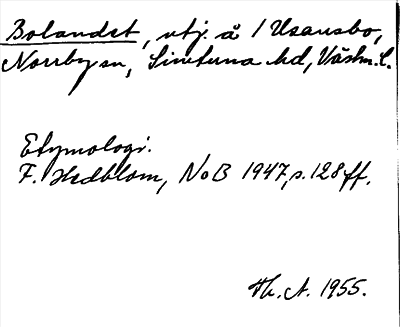 Bolandet, utj. å / Usansbo,
Norrby sn, Simtuna hd, Västm. l.
Etymologi.
F. Hedblom, NoB 1947, s. 128 ff.
Th. A. 1955.